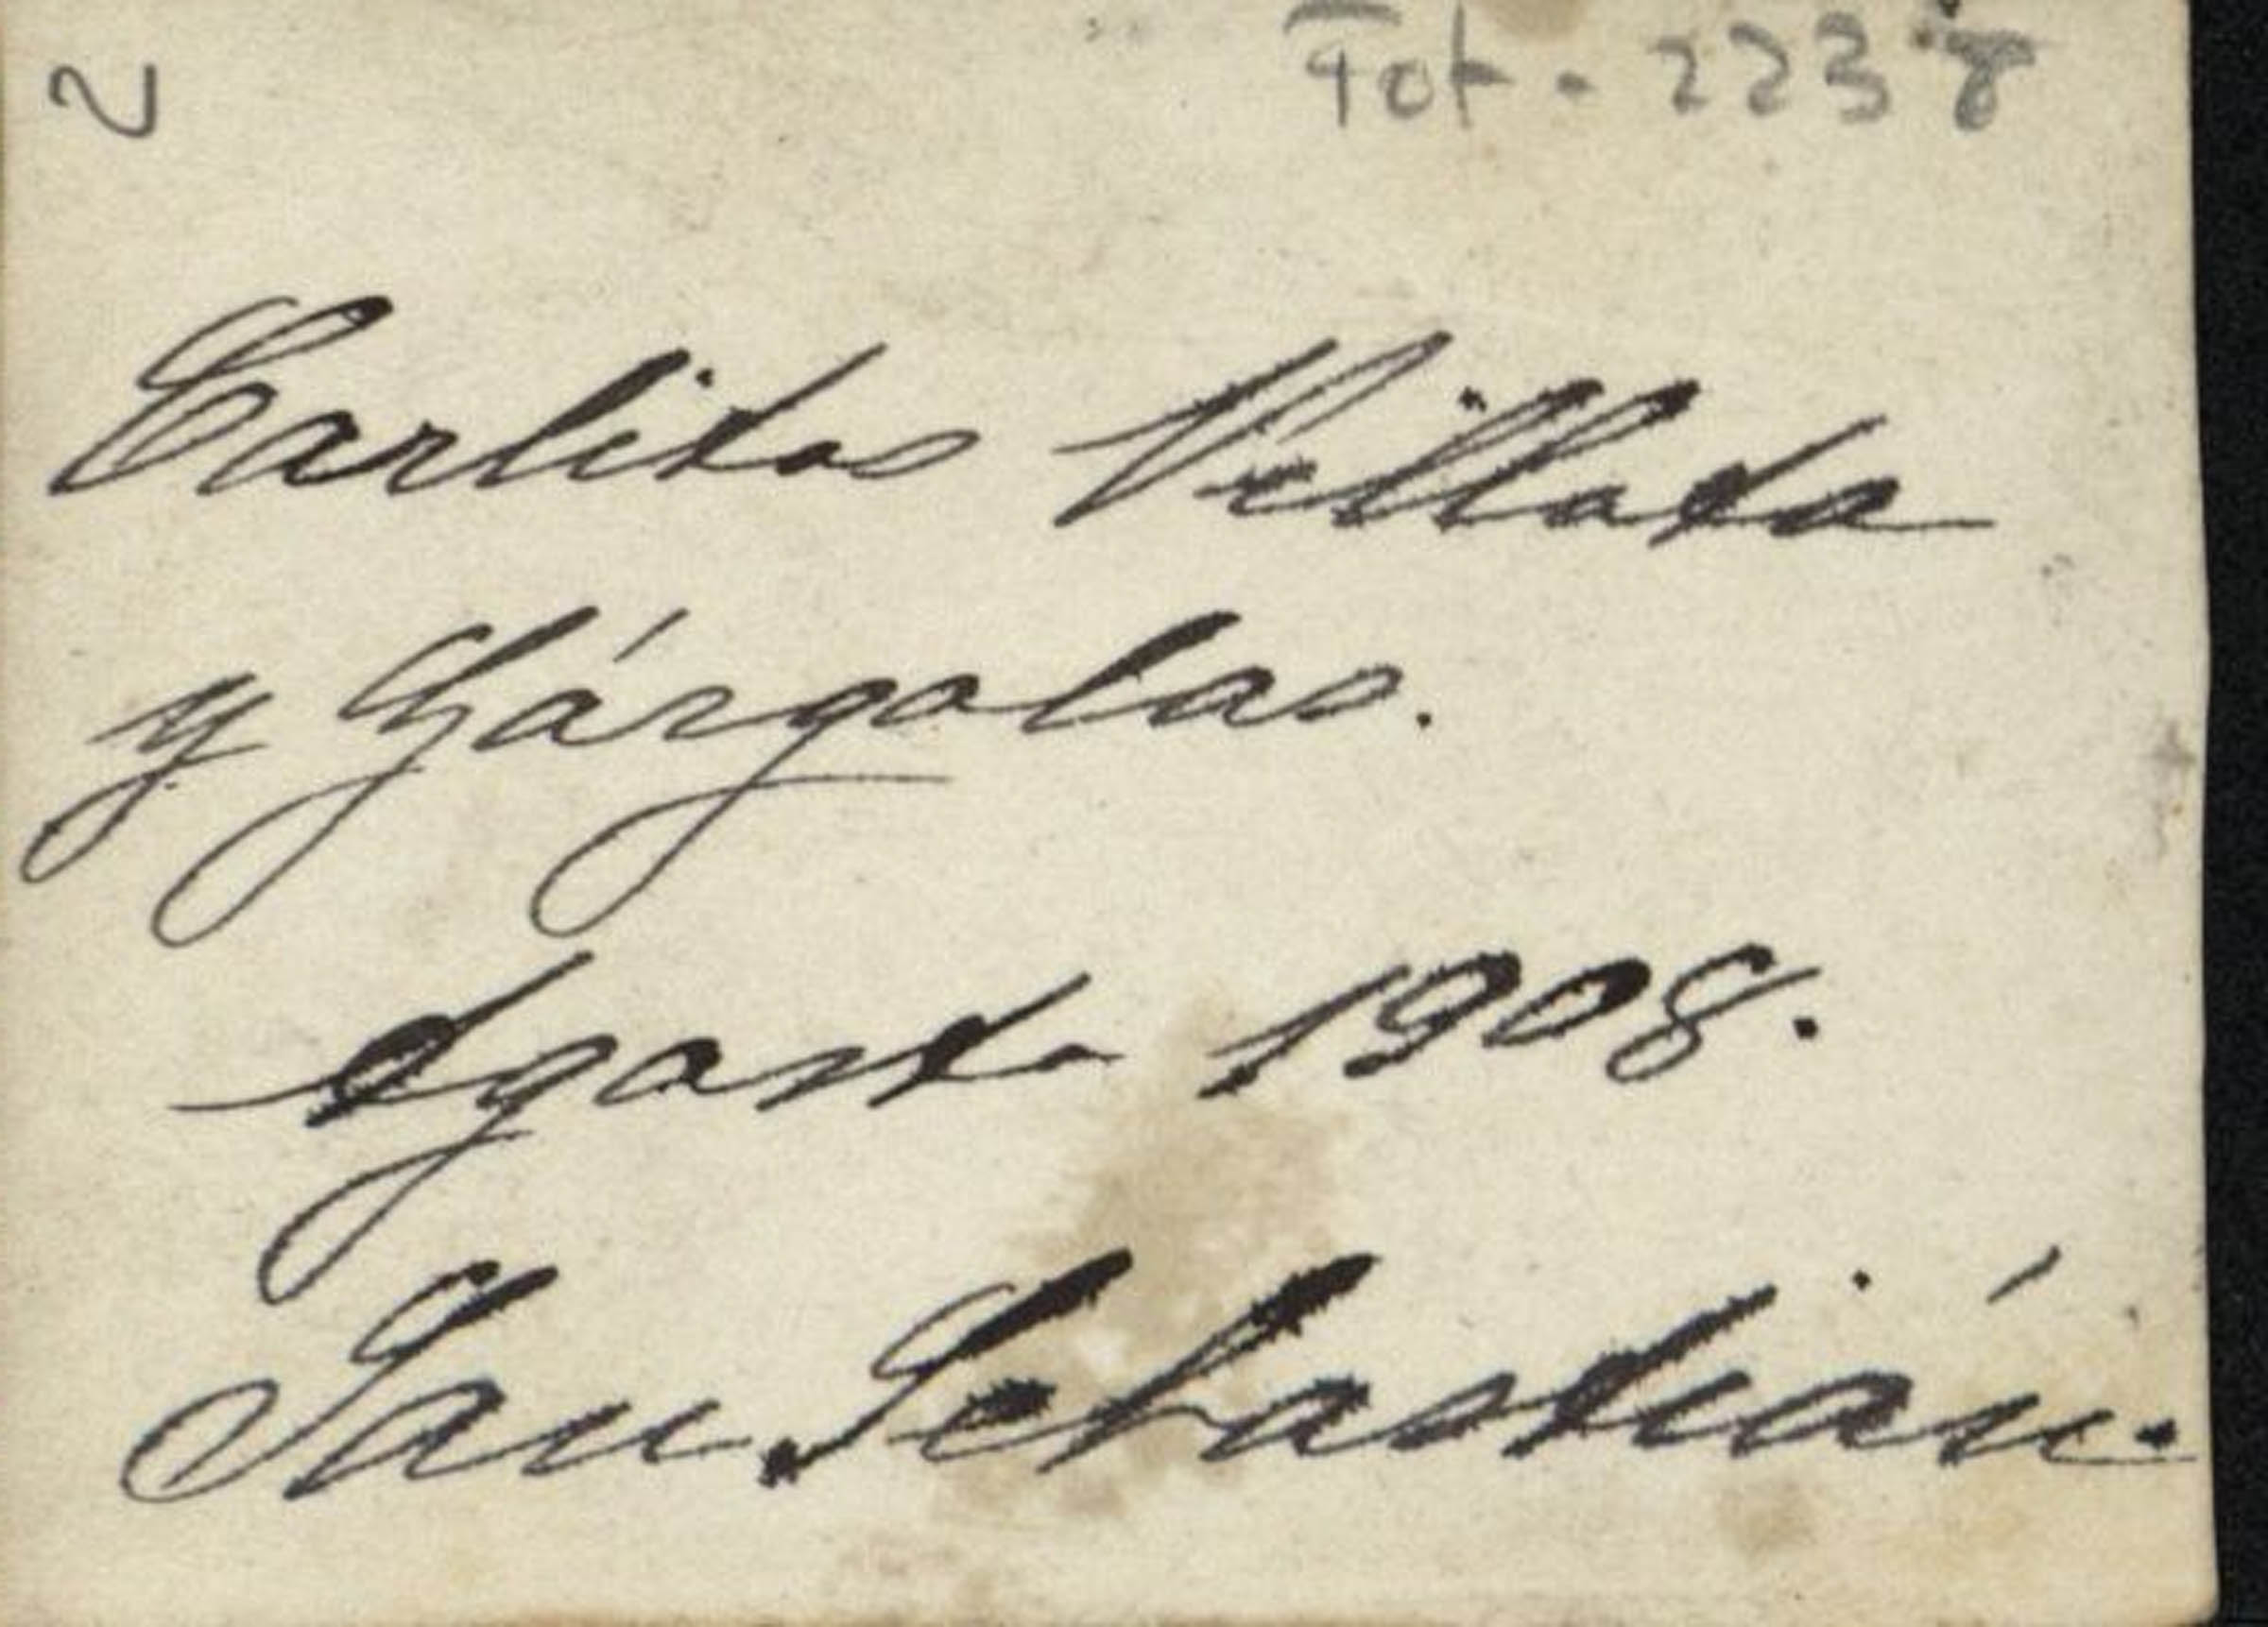 2
Fot - 2238
Carlitos Villota
y Gárgolas.
Agosto 1908.
San Sebastián.